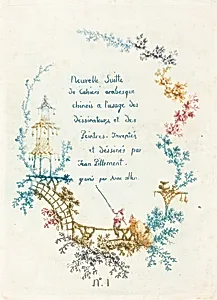 Nouvelle Suitte
De Cahiers arabesques
chinois a l'usage des
Dessinateurs et des
Peintres. Inventés
et Dessinés par
Jean Pillement.
gravés par Anne Allen.
N°. 1